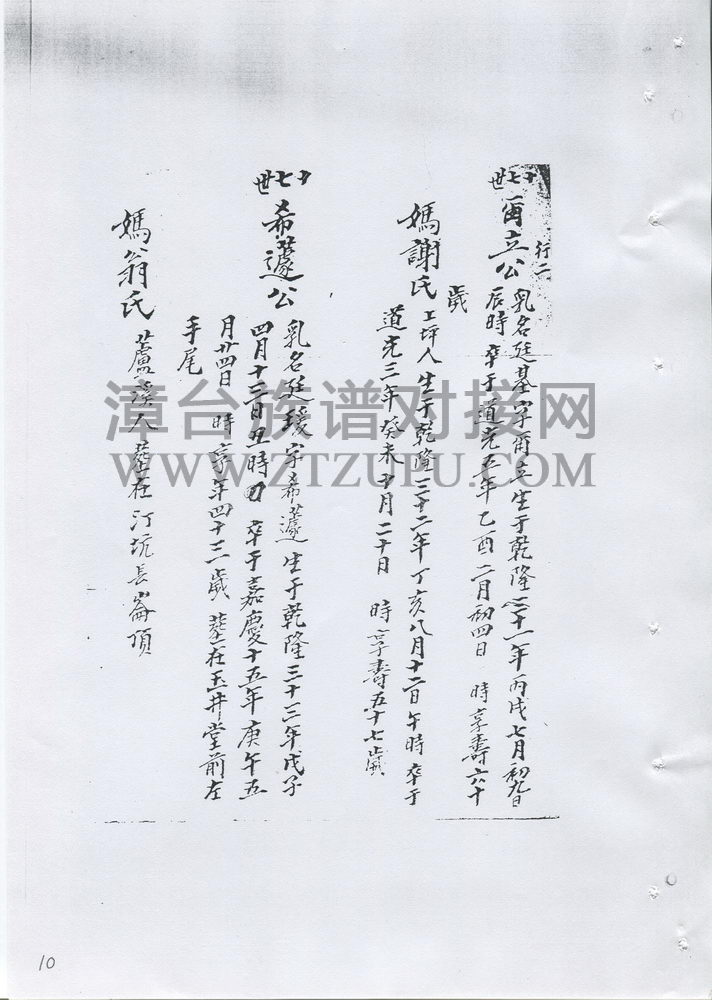 行二
十七世 爾立公 乳名廷基字爾立生于乾隆三十一年丙戌七月初九日
辰時 卒于道光五年乙酉二月初四日 時享壽六十
歲
媽謝氏 上坪人 生于乾隆三十二年丁亥八月十二日午時卒于
道光三年癸未十月二十日 時享壽五十七歲
十七世 希蘧公 乳名廷瑗字希蘧生于乾隆三十三年戊子
四月十三日丑時 卒于嘉慶十五年庚午五
月廿四日 時享年四十三歲 葬在玉井堂前左
手尾
媽翁氏 蘆溪人葬在汀坑長崙頂
漳台族谱对接网
WWW.ZTZUPU.COM
10